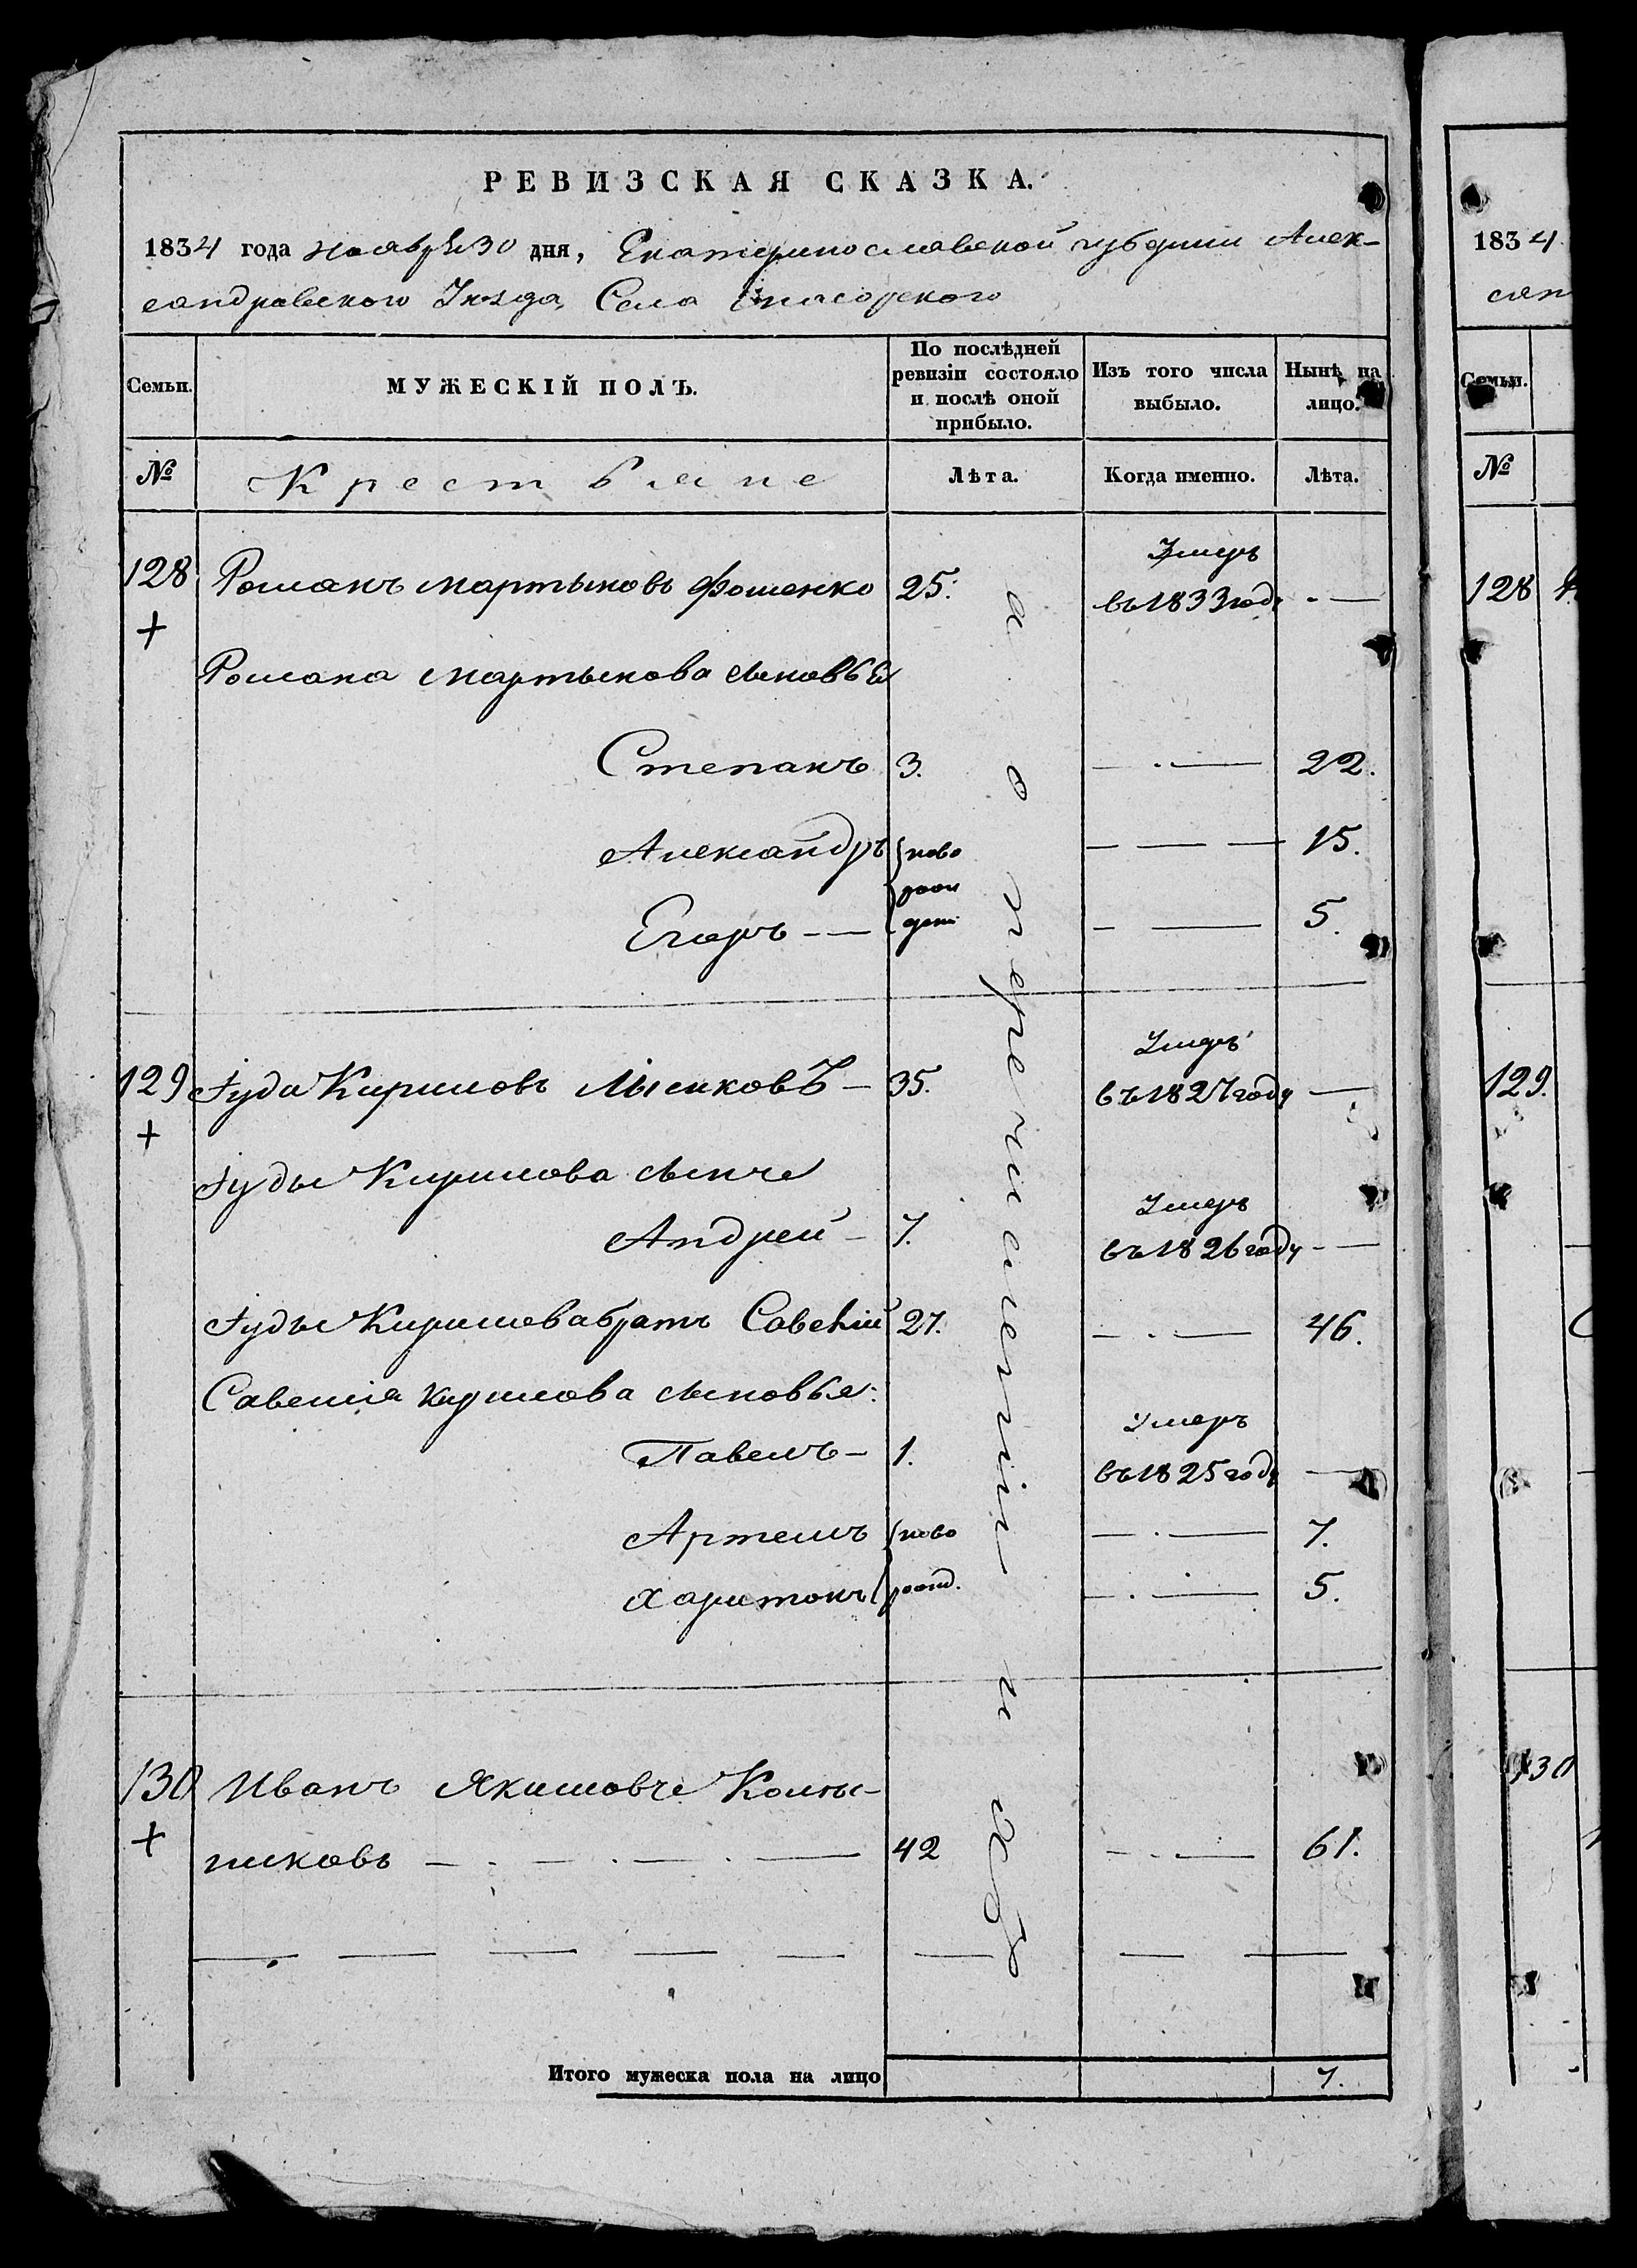 РЕВИЗСКАЯ СКАЗКА.
1834 года ноября 30 дня, Екатеринославской губернии Алек-
сандровского Уезда, Села
Семьи.
МУЖЕСКІЙ ПОЛЪ.
По послѣдней
ревизіи состояло
и послѣ оной
прибыло.
Изъ того числа
выбыло.
Нынѣ на
лицо.
№
Крестьяне
Лѣта.
Когда именно.
Лѣта.
Умеръ
128 Романъ Мартыновъ Фоменко 25. въ 1833 году
Романа Мартынова сыновья
Степанъ 3. 22.
Александръ ново 15.
рож
Егоръ ден 5.
Умеръ
129 Іуда Кириловъ 35. въ 1827 году
Іуды Кирилова сынъ
Умеръ
Андрей 7. въ 1826 году
Іуды Кирилова братъ Савелій 27. 46.
Савелія Кирилова сыновья:
Умеръ
Павелъ 1. въ 1825 году
Артемъ ново 7.
Харитонъ рожд. 5.
130 Иванъ Якимовъ Колпы-
никовъ 42 61.
Итого мужеска пола на лицо 7.
а о перечислении ихъ
1834
сан
Семьи.
№
128
129.
130